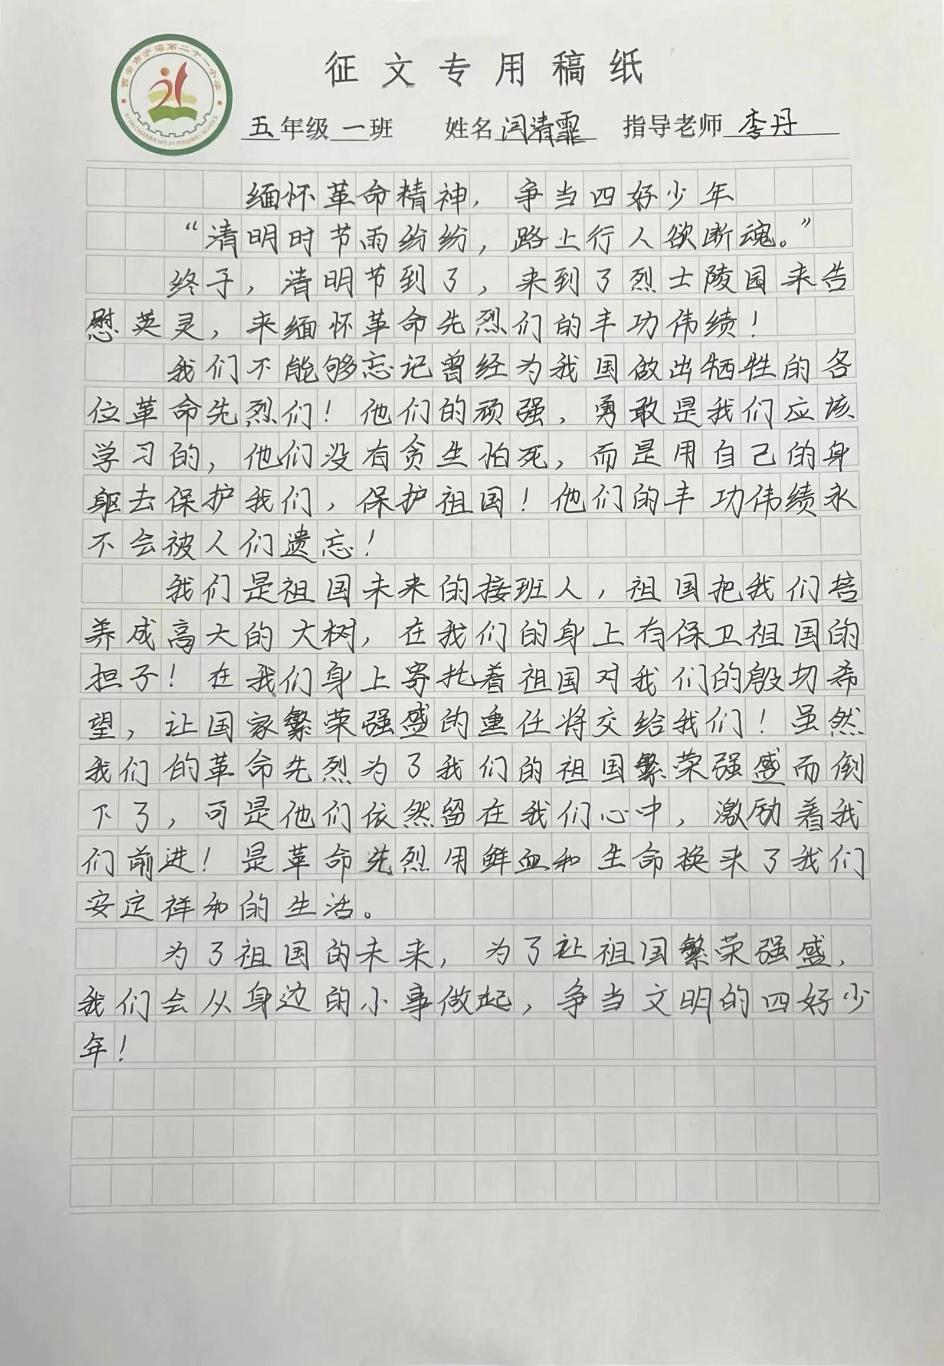 征文专用稿纸
五年级一班 姓名闫清霏 指导老师李丹
缅怀革命精神，争当四好少年
“清明时节雨纷纷，路上行人欲断魂。”
终于，清明节到了，来到了烈士陵园来告
慰英灵，来缅怀革命先烈们的丰功伟绩！
我们不能够忘记曾经为我国做出牺牲的各
位革命先烈们！他们的顽强，勇敢是我们应该
学习的，他们没有贪生怕死，而是用自己的身
躯去保护我们，保护祖国！他们的丰功伟绩永
不会被人们遗忘！
我们是祖国未来的接班人，祖国把我们培
养成高大的大树，在我们的身上有保卫祖国的
担子！在我们身上寄托着祖国对我们的殷切希
望，让国家繁荣强盛的重任将交给我们！虽然
我们的革命先烈为了我们的祖国繁荣强盛而倒
下了，可是他们依然留在我们心中，激励着我
们前进！是革命先烈用鲜血和生命换来了我们
安定祥和的生活。
为了祖国的未来，为了让祖国繁荣强盛，
我们会从身边的小事做起，争当文明的四好少
年！